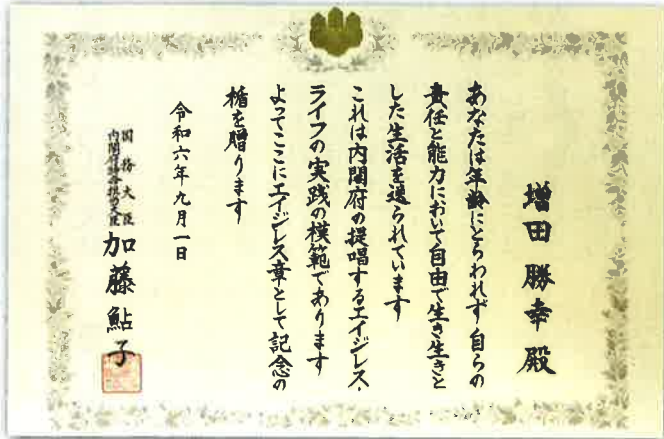 増田勝幸殿
あなたは年齢にとらわれず自らの
責任と能力において自由で生き生きと
した生活を送られています
これは内閣府の提唱するエイジレス・
ライフの実践の模範であります
よってここにエイジレス章として記念の
楯を贈ります
令和六年九月一日
国務大臣
内閣府特命担当大臣
加藤鮎子